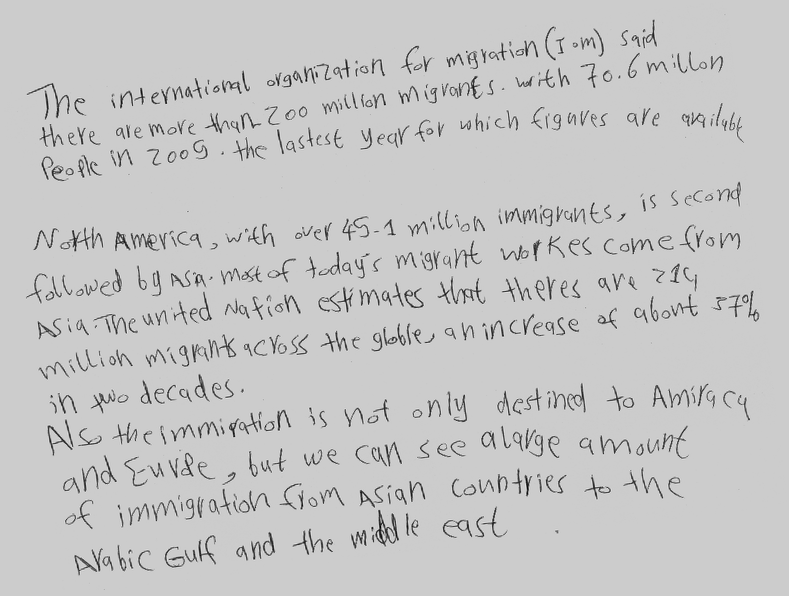 The international organization for migration (Iom) said
there are more than 200 million migrants. with 70.6 millon
People in 2009. the lastest year for which figures are availabl
North America, with over 45.1 million immigrants, is second
followed by Asia. most of today's migrant workes come from
Asia. The united Nation estimates that theres are 214
million migrants across the globle, an increase of about 37%
in two decades.
Also the immiration is not only destined to Amiraca
and Eurpe, but we can see alarge amount
of immigration from Asian countries to the
Arabic Gulf and the middle east .